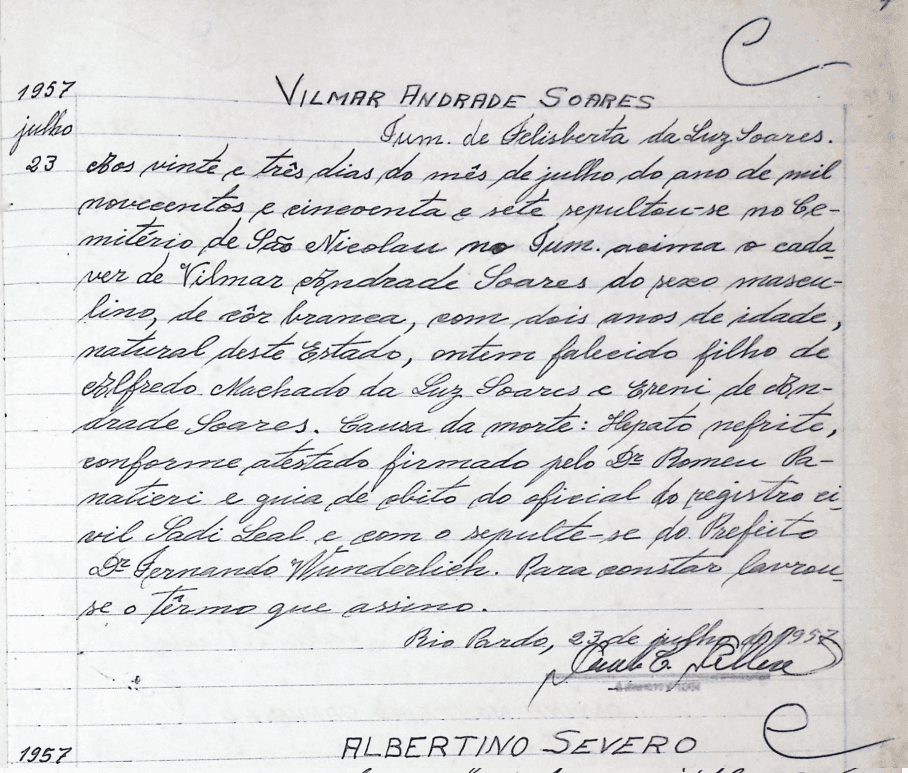 1957
VILMAR ANDRADE SOARES
julho
Tum. de Felisberta da Luz Soares.
23
Aos vinte e três dias do mês de julho do ano de mil
novecentos e cincoenta e sete sepultou-se no Ce-
mitério de São Nicolau no Tum. acima o cada-
ver de Vilmar Andrade Soares do sexo mascu-
lino, de côr branca, com dois anos de idade,
natural deste Estado, ontem falecido filho de
Alfredo Machado da Luz Soares e Ereni de An-
drade Soares. Causa da morte: Hepato nefrite,
conforme atestado firmado pelo Dr. Romeu Pa-
natieri e guia de obito do oficial do registro ci-
vil Sadi Leal e com o sepulte-se do Prefeito
Dr. Fernando Wunderlich. Para constar lavrou-
se o têrmo que assino.
Rio Pardo, 23 de julho de 1957
1957
ALBERTINO SEVERO